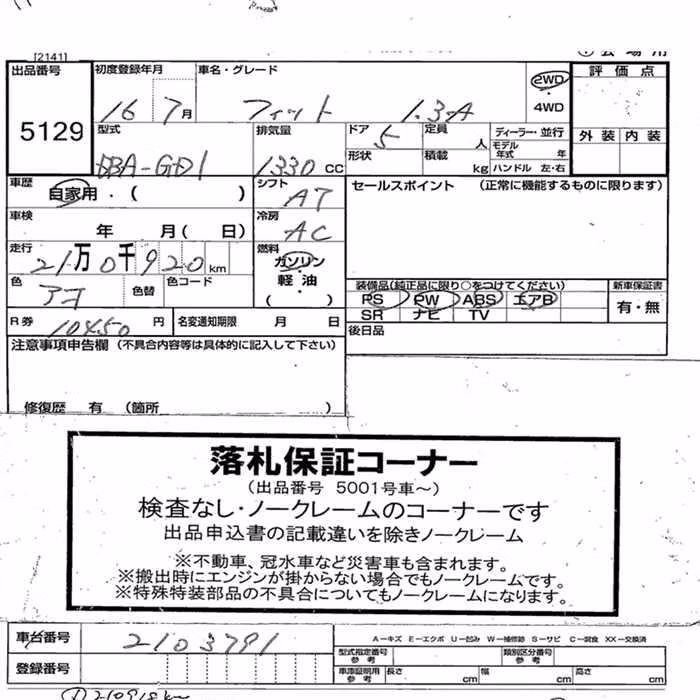 [2141]
出品番号
5129
初度登録年月
16 7月
車名・グレード
フィット 1.3A
2WD
4WD
評価点
外装 内装
型式
DBA-GD1
排気量
1330 CC
ドア
5
定員
人
形状
積載
kg
ディーラー・並行
モデル年式 年
ハンドル 左・右
車歴
自家用・( )
シフト
AT
セールスポイント (正常に機能するものに限ります)
車検
年 月( 日)
冷房
AC
走行
21万0千920km
燃料
ガソリン
軽油
( )
色
色替
色コード
装備品(純正品に限り○をつけてください)
PS PW ABS エアB
SR ナビ TV
新車保証書
有・無
R券
10450 円
名変通知期限 月 日
後日品
注意事項申告欄 (不具合内容等は具体的に記入して下さい)
修復歴 有 (箇所 )
落札保証コーナー
(出品番号 5001号車~)
検査なし・ノークレームのコーナーです
出品申込書の記載違いを除きノークレーム
※不動車、冠水車など災害車も含まれます。
※搬出時にエンジンが掛からない場合でもノークレームです。
※特殊特装部品の不具合についてもノークレームになります。
車台番号
2103791
A-キズ E-エクボ U-凹み W-補修跡 S-サビ C-腐食 XX-交換済
型式指定番号 参考
類別区分番号 参考
登録番号
車庫証明用 参考
長さ cm
幅 cm
高さ cm